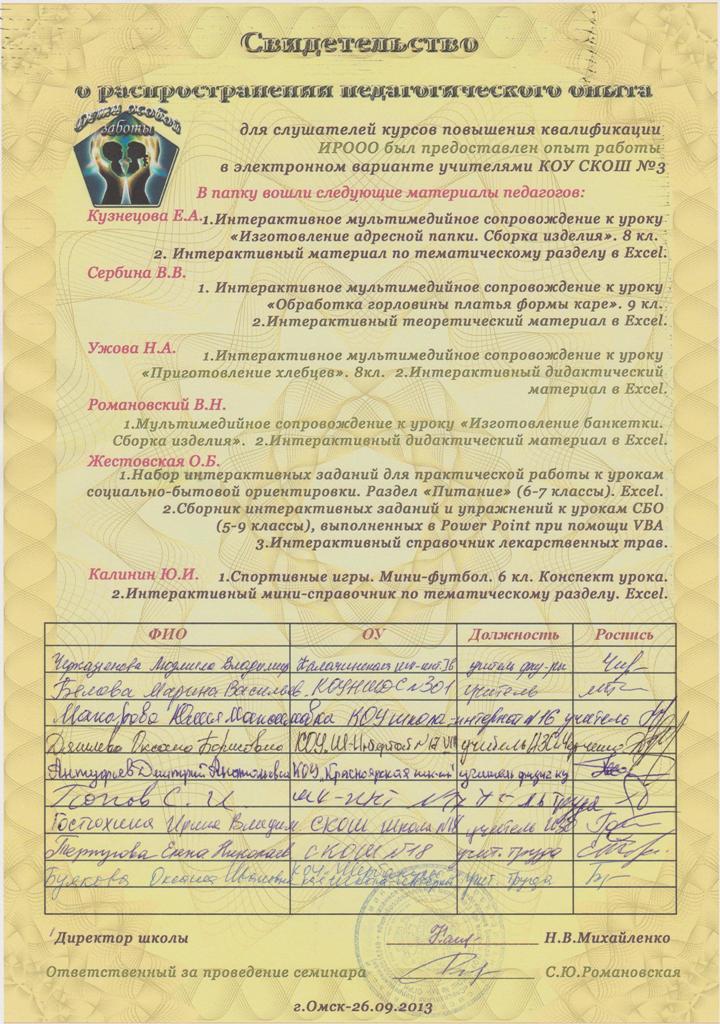 Свидетельство
о распространении педагогического опыта
Дети особой
заботы
для слушателей курсов повышения квалификации
ИРООО был предоставлен опыт работы
в электронном варианте учителями КОУ СКОШ №3
В папку вошли следующие материалы педагогов:
Кузнецова Е.А. 1.Интерактивное мультимедийное сопровождение к уроку
«Изготовление адресной папки. Сборка изделия». 8 кл.
2. Интерактивный материал по тематическому разделу в Excel.
Сербина В.В.
1. Интерактивное мультимедийное сопровождение к уроку
«Обработка горловины платья формы каре». 9 кл.
2.Интерактивный теоретический материал в Excel.
Ужова Н.А.
1.Интерактивное мультимедийное сопровождение к уроку
«Приготовление хлебцев». 8кл. 2.Интерактивный дидактический
материал в Excel.
Романовский В.Н.
1.Мультимедийное сопровождение к уроку «Изготовление банкетки.
Сборка изделия». 2.Интерактивный дидактический материал в Excel.
Жестовская О.Б.
1.Набор интерактивных заданий для практической работы к урокам
социально-бытовой ориентировки. Раздел «Питание» (6-7 классы). Excel.
2.Сборник интерактивных заданий и упражнений к урокам СБО
(5-9 классы), выполненных в Power Point при помощи VBA
3.Интерактивный справочник лекарственных трав.
Калинин Ю.И. 1.Спортивные игры. Мини-футбол. 6 кл. Конспект урока.
2.Интерактивный мини-справочник по тематическому разделу. Excel.
ФИО ОУ Должность Роспись
Людмила Владимир учитель
Белова Марина Васильев. №301 учитель
Макарова КОУ школа-интернат №16 учитель
Оксана Борисовна КОУ учитель
Дмитрий Анатольевич КОУ Красноярская учитель
Попов С. И труда
Ирина Владим СКОШ школа №18 учитель
Елена Николаев СКОШ №18 учит. труда
Буякова Оксана Ивановн учит. труда
Директор школы Н.В.Михайленко
Ответственный за проведение семинара С.Ю.Романовская
г.Омск-26.09.2013